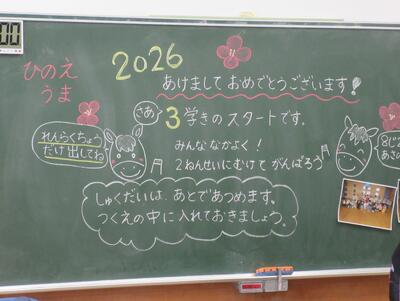 2026
ひのえ
うま
あけまして おめでとうございます!
さあ
3学きの スタートです。
れんらくちょう
だけ 出してね
みんな なかよく!
2ねんせいにむけて がんばろう
しゅくだいは、あとであつめます。
つくえの中に入れておきましょう。